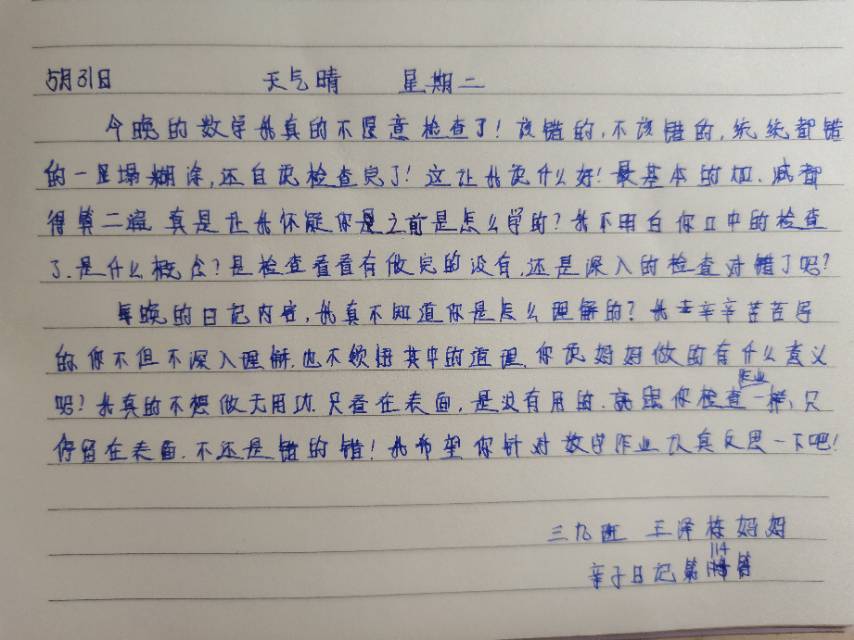 5月31日 天气晴 星期二
今晚的数学我真的不愿意检查了!该错的,不该错的,统统都错
的一塌糊涂,还自己检查完了!这让我说什么好!最基本的加、减都
得算二遍 真是让我怀疑你是之前是怎么学的?我不明白你口中的检查
了.是什么概念?是检查看看有做完的没有,还是深入的检查对错了吗?
每晚的日记内容,我真不知道你是怎么理解的?我辛辛苦苦写
的你不但不深入理解.也不领悟其中的道理.你说妈妈做的有什么意义
呢?我真的不想做无用功.只看在表面,是没有用的.就跟你检查作业一样,只
停留在表面.不还是错的错!我希望你针对数学作业认真反思一下吧!
三九班 王泽栋妈妈
亲子日记第114篇